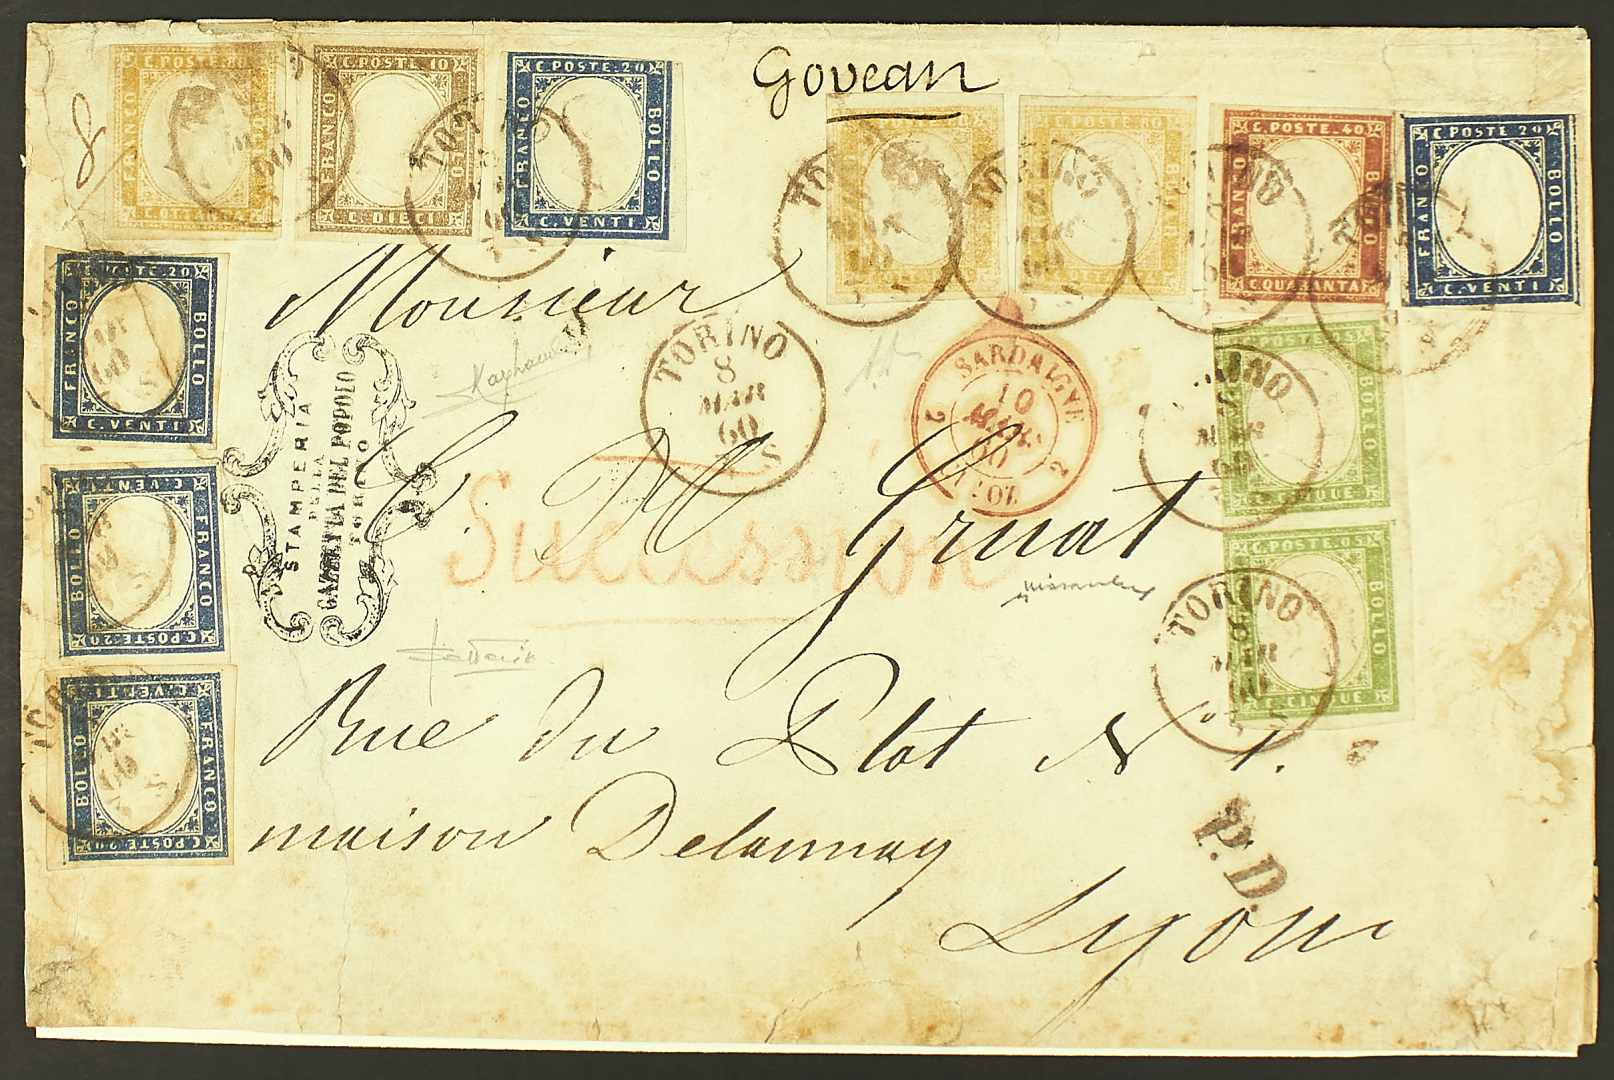 Govean
8
C. POSTE. 80
FRANCO
BOLLO
C. OTTANTA
C. POSTE. 10
FRANCO
BOLLO
C. DIECI
C. POSTE. 20
FRANCO
BOLLO
C. VENTI
C. POSTE. 80
C. POSTE. 40
FRANCO
BOLLO
C. QUARANTA
C. POSTE 20
FRANCO
BOLLO
C. VENTI
C. POSTE. 20
FRANCO
BOLLO
C. VENTI
C. POSTE. 20
FRANCO
BOLLO
C. VENTI
C. POSTE. 20
FRANCO
BOLLO
C. VENTI
C. POSTE. 05
BOLLO
C. CINQUE
C. POSTE. 05
BOLLO
C. CINQUE
Monsieur
TORINO
8
MAR
60
S
SARDAIGNE
10
MARS
60
2 2
STAMPERIA
DELLA
GAZZETTA DEL POPOLO
TORINO
Succession
C. M. Gruat
Rue du Plat N 1.
maison Delaunay
Lyon
P.D.
TORINO
8
MAR
60